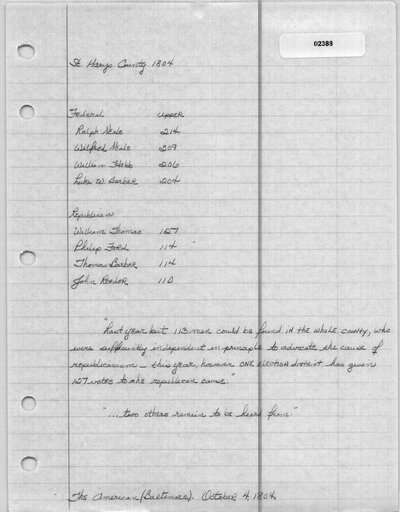 02388
St. Marys County 1804
Federal Upper
Ralph Neale 214
Wilfred Neale 209
William Hebb 206
Luke W. Barber 204
Republican
William Thomas 127
Philip Ford 114
Thomas Barber 114
John Reeder 110
"Last year but 113 men could be found in the whole county, who
were sufficiently independent in principle to advocate the cause of
republicanism — this year, however ONE ELECTION DISTRICT has given
127 votes to the republican cause."
"...two others remain to be heard from."
The American (Baltimore). October 4, 1804.